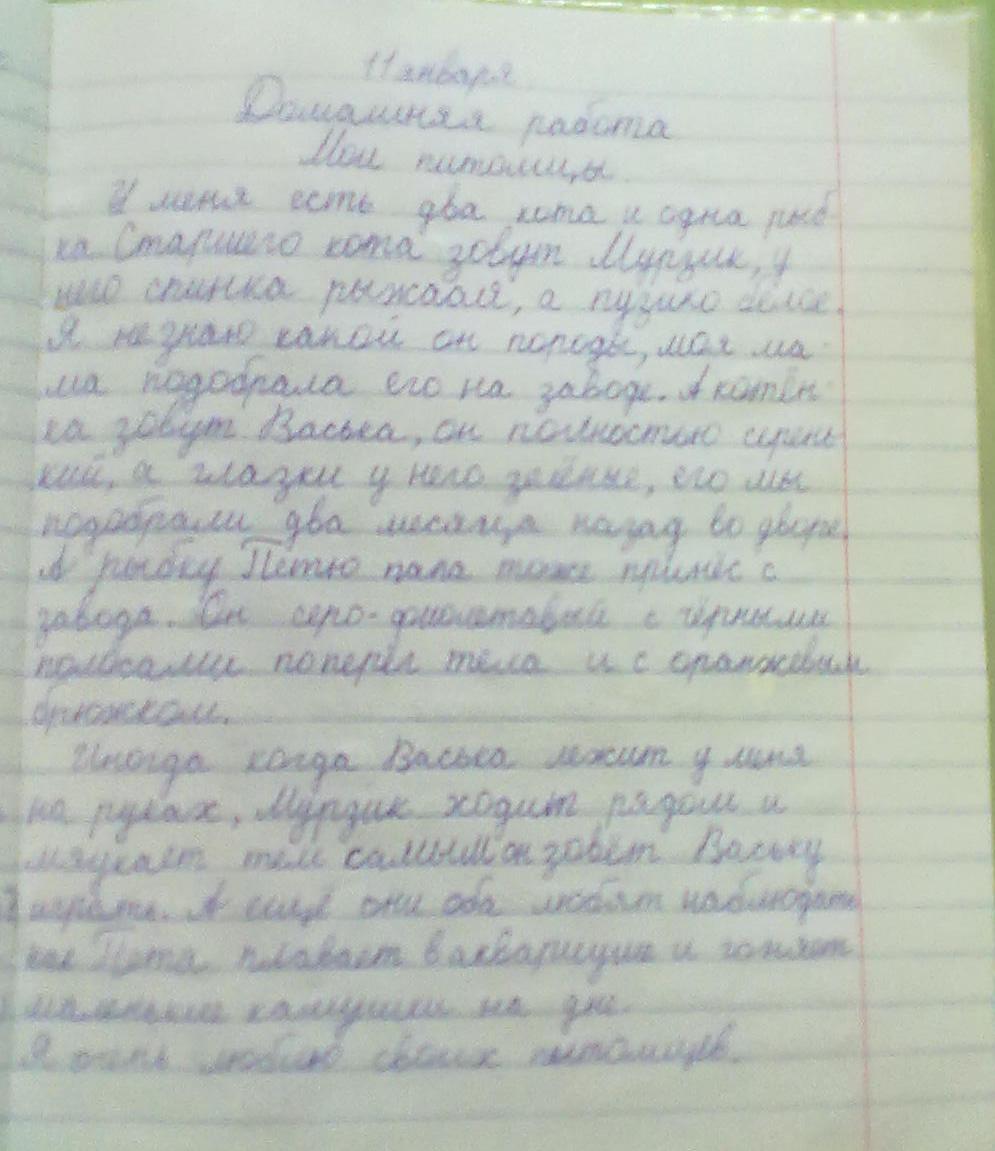 11 января
Домашняя работа
Мои питомцы.
У меня есть два кота и одна рыб
ка Старшего кота зовут Мурзик, у
него спинка рыжая, а пузико белое.
Я не знаю какой он породы, моя ма-
ма подобрала его на заводе. А котён-
ка зовут Васька, он полностью серень
кий, а глазки у него зелёные, его мы
подобрали два месяца назад во дворе.
А рыбку Петю папа тоже принёс с
завода. Он серо-фиолетовый с чёрными
полосами поперёк тела и с оранжевым
брюжком.
Иногда когда Васька лежит у меня
на руках, Мурзик ходит рядом и
мяукает тем самым зовёт Ваську
играть. А ещё они оба любят наблюдать
как Петя плавает в аквариуме и гоняет
маленькие камушки на дне.
Я очень люблю своих питомцев.